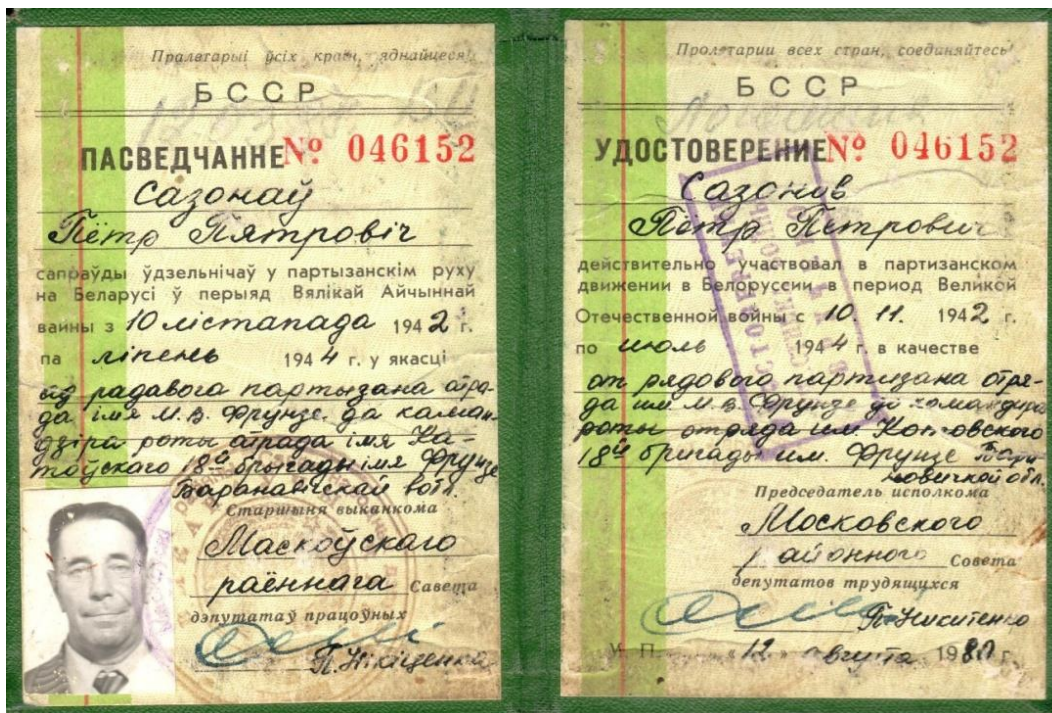 Пралетарыі ўсіх краін, яднайцеся!
БССР
ПАСВЕДЧАННЕ № 046152
Сазонаў
Пётр Пятровіч
сапраўды ўдзельнічаў у партызанскім руху
на Беларусі ў перыяд Вялікай Айчыннай
вайны з 10 лістапада 1942 г.
па ліпень 1944 г. у якасці
ад радавога партызана атра-
да імя М.В. Фрунзе да каман-
дзіра роты атрада імя Ка-
тоўскага 18й брыгады імя Фрунзе
Баранавічскай вобл.
Старшыня выканкома
Маскоўскаго
раённага Савета
дэпутатаў працоўных
П. Нікіценка
Пролетарии всех стран, соединяйтесь!
БССР
УДОСТОВЕРЕНИЕ № 046152
Сазонов
Пётр Петрович
действительно участвовал в партизанском
движении в Белоруссии в период Великой
Отечественной войны с 10. 11. 1942 г.
по июль 1944 г. в качестве
от рядового партизана отря-
да им М.В. Фрунзе до командира
роты отряда им Котовского
18й бригады им. Фрунзе Бара-
новичской обл.
Председатель исполкома
Московского
районного Совета
депутатов трудящихся
П. Никитенко
М. П. "12" августа 1980 г.